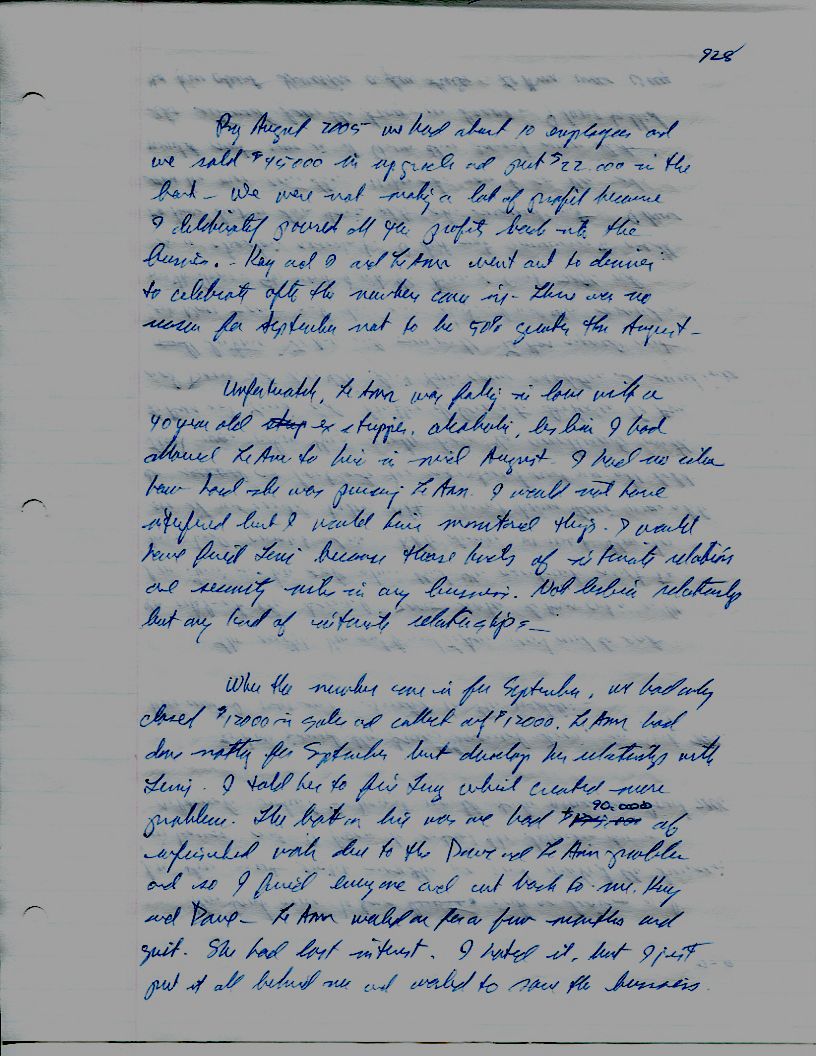 928
By August 2005 we had about 10 employees and
we sold $45,000 in upgrade and put $22,000 in the
bank - We were not making a lot of profit because
I deliberately poured all the profits back into the
business. - Kay and I and LeAnn went out to dinner
to celebrate after the numbers came in - There was no
reason for September not to be 50% greater than August -
Unfortunately, LeAnn was falling in love with a
40 year old ex stripper, alcoholic, lesbian I had
allowed LeAnn to hire in mid August. I had no idea
how hard she was pursuing LeAnn. I would not have
interfered but I would have monitored things. I would
have fired because those kinds of intimate relations
are security risks in any business. Not lesbian relationships
but any kind of intimate relationships -
When the number came in for September, we had only
closed $12000 in sales and collected only $12000. LeAnn had
done nothing for September but develop her relationship with
I told her to fire which created more
problems. The bottom line was we had $90,000 of
unfinished work due to the Dave and LeAnn problem
and so I fired everyone and cut back to me, Kay
and Dave - LeAnn worked on for a few months and
quit. She had lost interest. I hated it, but I just
put it all behind me and worked to save the business.